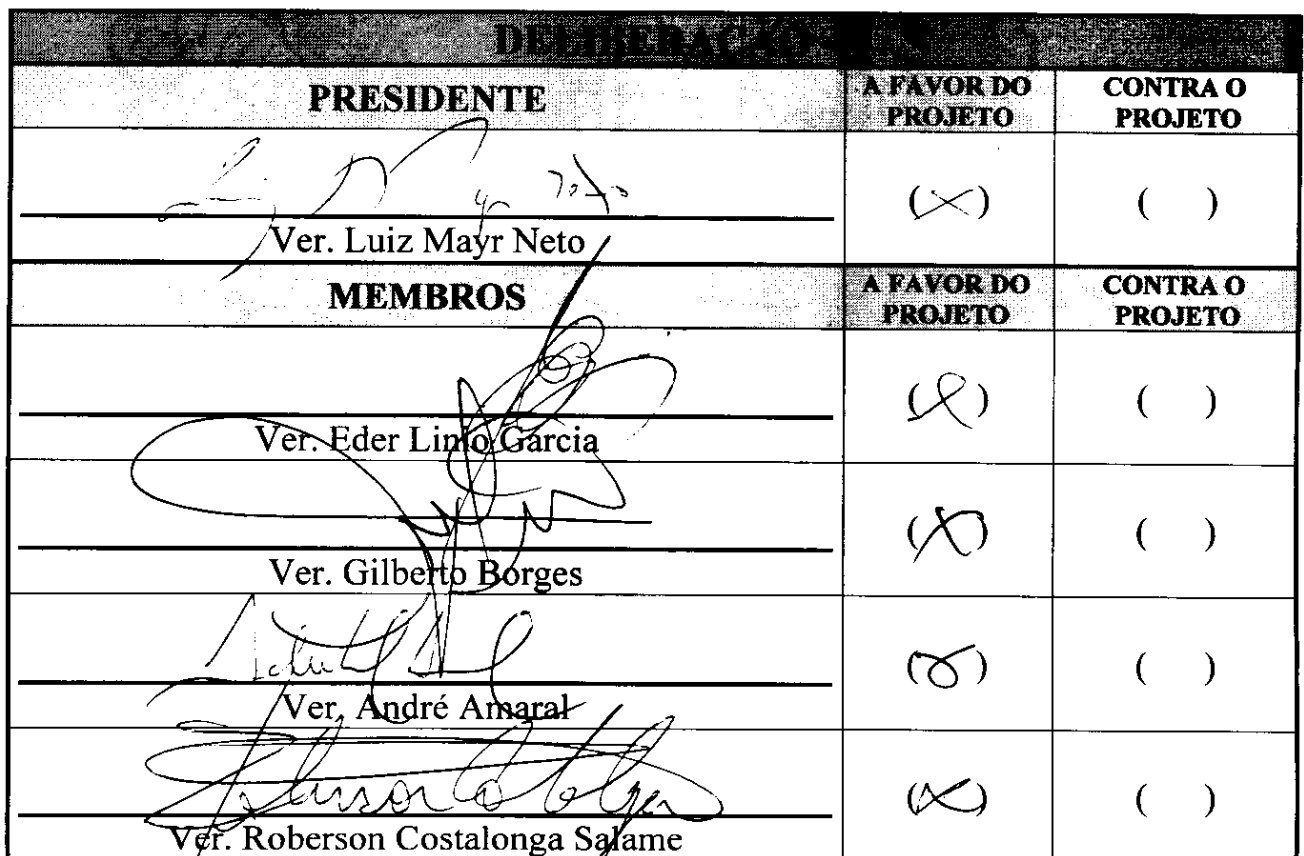 DELIBERAÇÃO
PRESIDENTE A FAVOR DO PROJETO CONTRA O PROJETO
(X) ( )
Ver. Luiz Mayr Neto
MEMBROS A FAVOR DO PROJETO CONTRA O PROJETO
(X) ( )
Ver. Eder Linio Garcia
(X) ( )
Ver. Gilberto Borges
(X) ( )
Ver. André Amaral
(X) ( )
Ver. Roberson Costalonga Salame